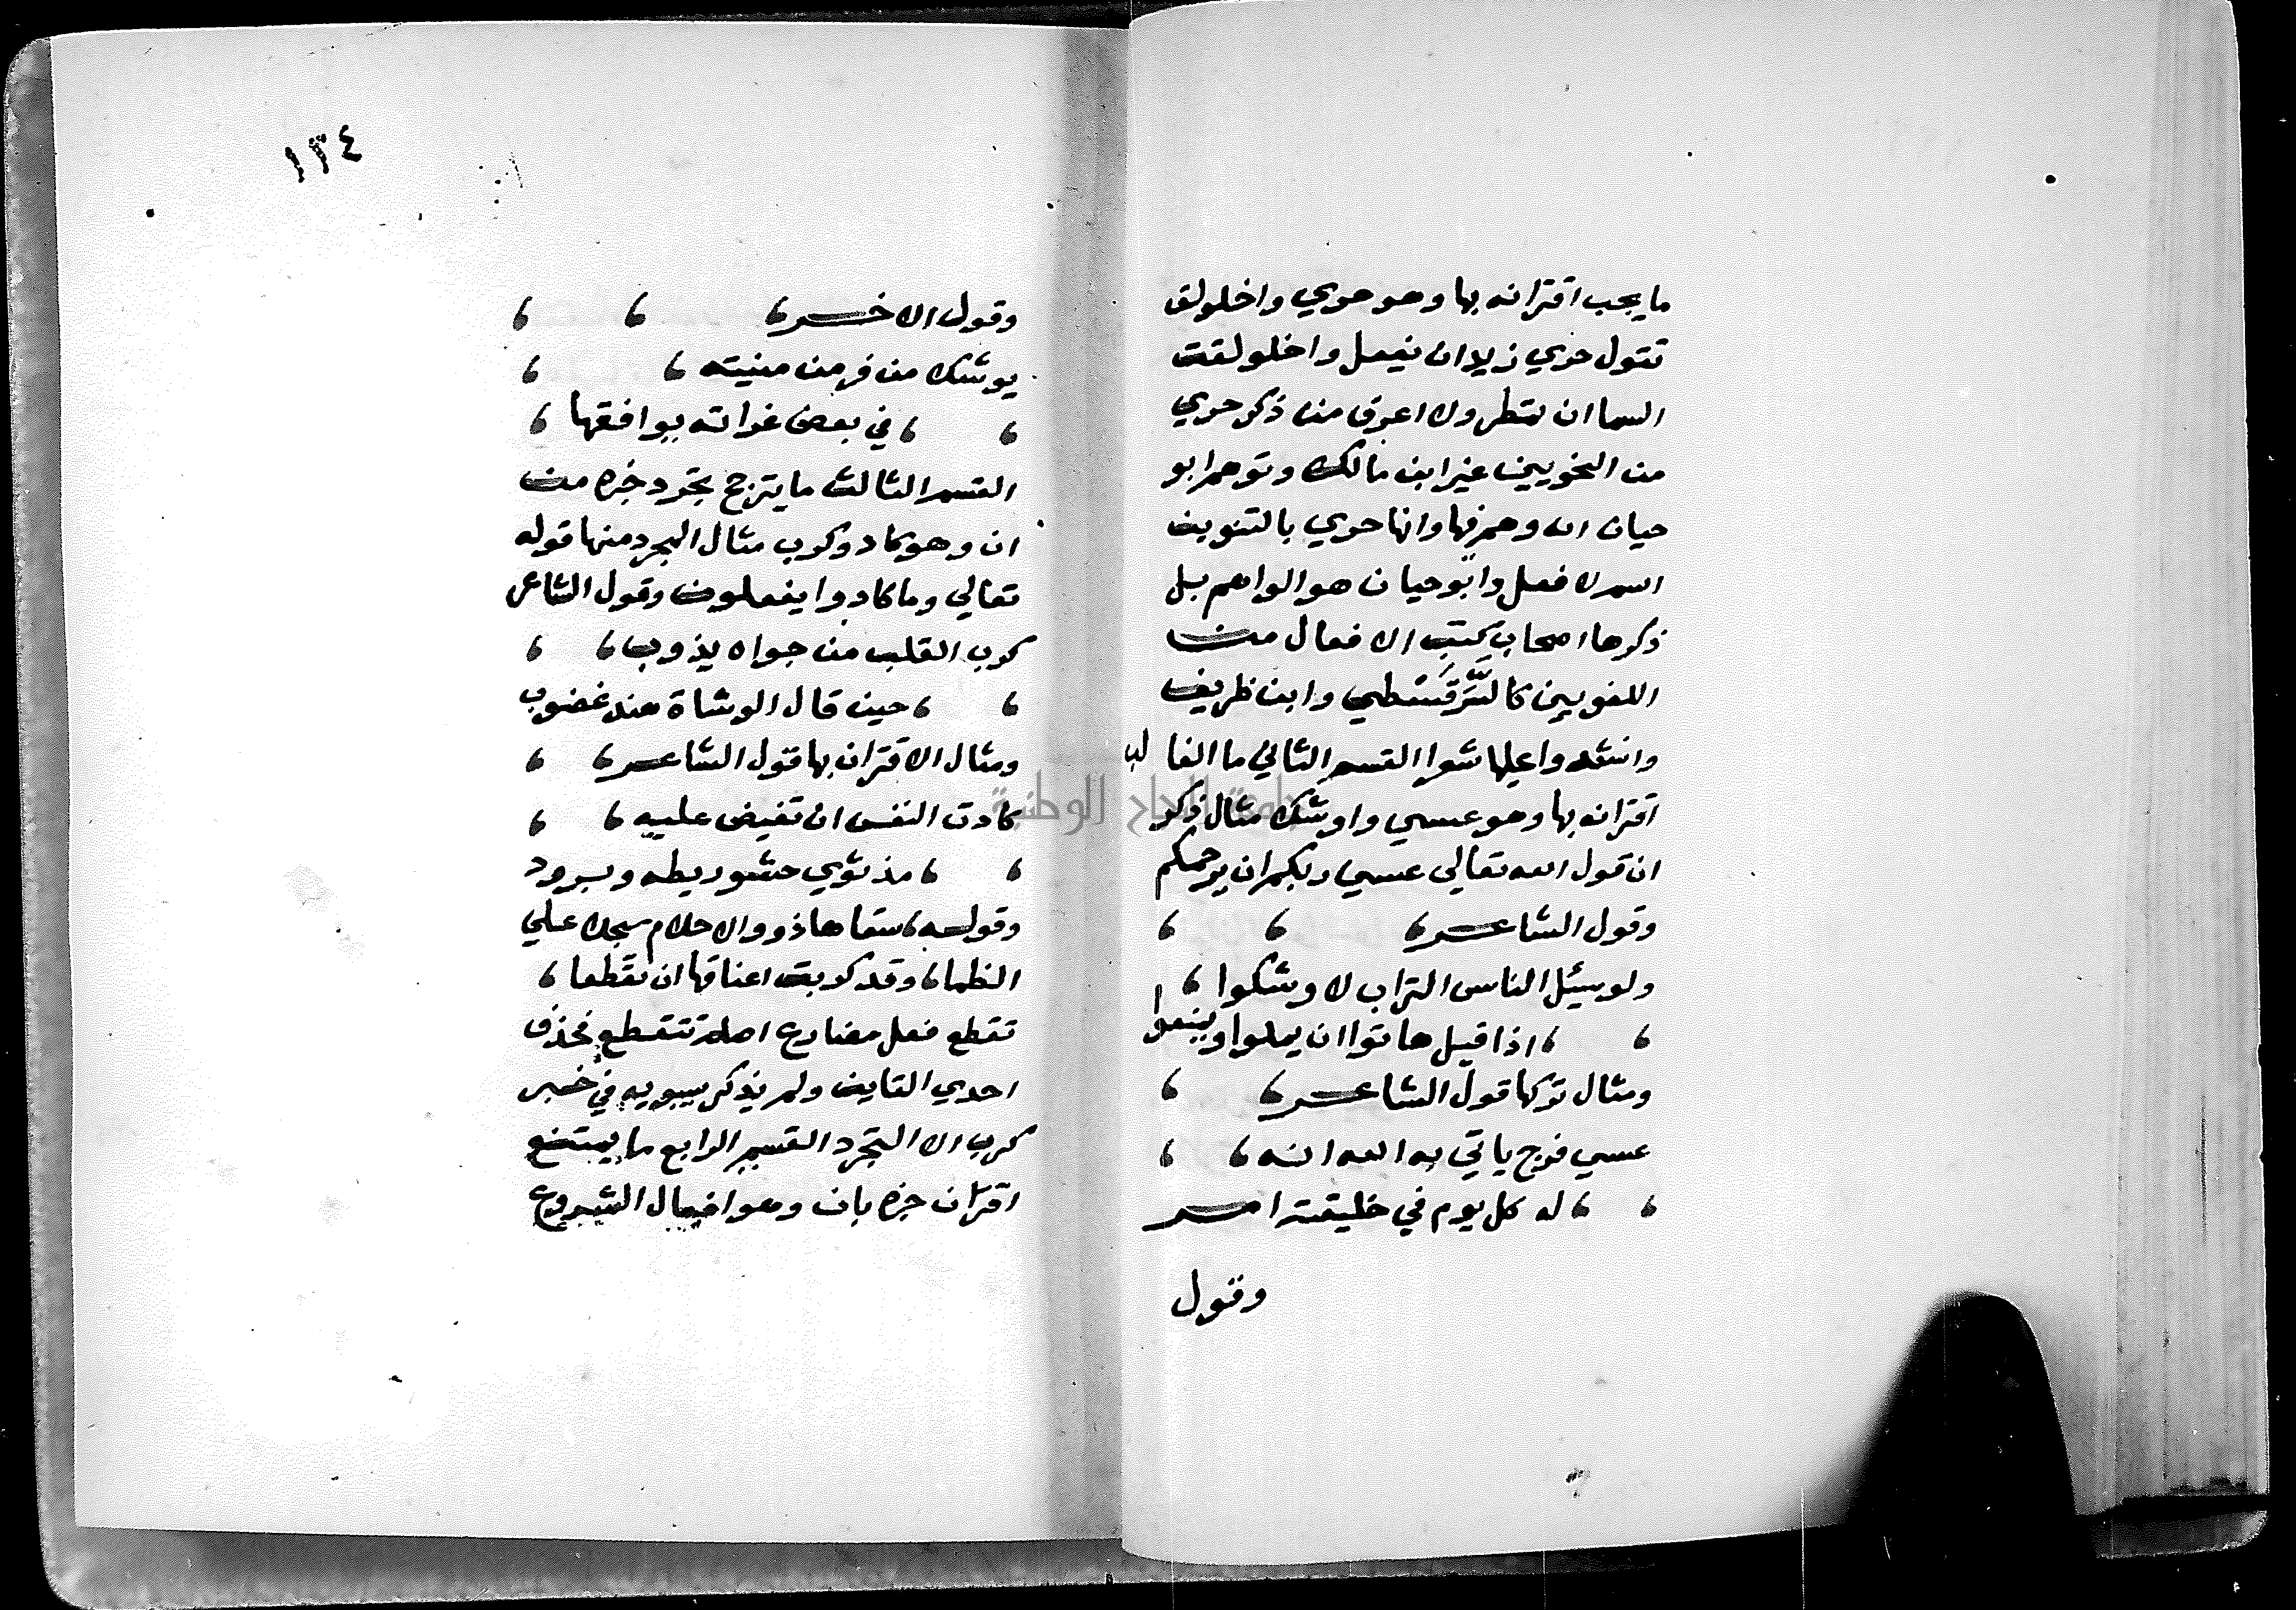 ما يجب اقترانه بها وهو حري واخلولق
تقول حري زيد ان يفعل واخلولقت
السما ان تمطر ولا اعرف من ذكر حري
من النحويين غير ابن مالك وتوهم ابو
حيان انه وهم فيها وانها حري بالتنوين
اسم لا فعل وابو حيان هو الواهم بل
ذكرها اصحاب كتب الافعال من
اللغويين كالسَّرَقُسْطي وابن ظريف
وانشدوا عليها شعرا القسم الثاني ما الغالب
اقترانه بها وهو عسي واوشك مثال ذكر
ان قول الله تعالي عسي ربكم ان يرحمكم
وقول الشاعر
ولو سيئل الناس التراب لاوشكوا
اذا قيل هاتوا ان يملوا ويمنعوا
ومثال تركها قول الشاعر
عسي فرج ياتي به الله انه
له كل يوم في خليقته امر
وقول
١٣٤
وقول الاخر
يوشك من فر من منيته
في بعض غراته يوافقها
القسم الثالث ما يترجح تجرد خبره من
ان وهو كاد وكرب مثال التجرد منها قوله
تعالي وما كادوا يفعلون وقول الشاعر
كرب القلب من جواه يذوب
حين قال الوشاة هند غضوب
ومثال الاقتران بها قول الشاعر
كادت النفس ان تفيض عليه
مذ ثوي حشو ريطه وبرود
وقوله سقاها ذوو الاحلام سجلا علي
الظما وقد كربت اعناقها ان تقطعا
تقطع فعل مضارع اصله تتقطع فحذف
احدي التاين ولم يذكر سيبويه في خبر
كرب الا التجرد القسم الرابع ما يمتنع
اقتران خبره بان وهو افعال الشروع
جامعة النجاح الوطنية